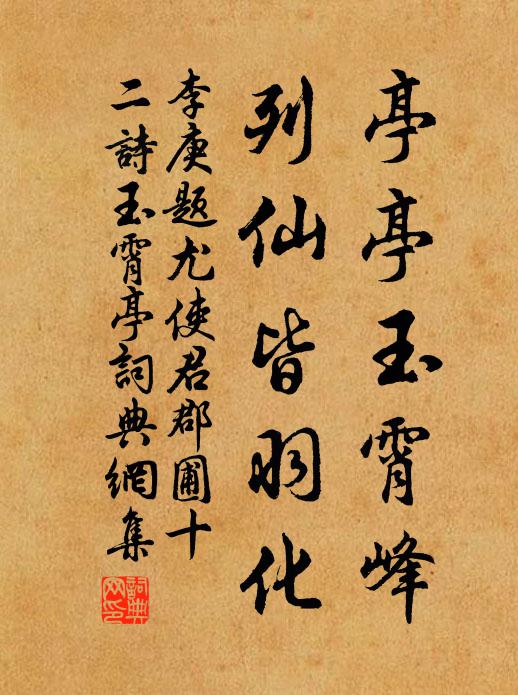 亭亭玉霄峰
列仙皆羽化
李庚题尤使君郡圃十
二詩玉霄亭詞典網集
詞典網印